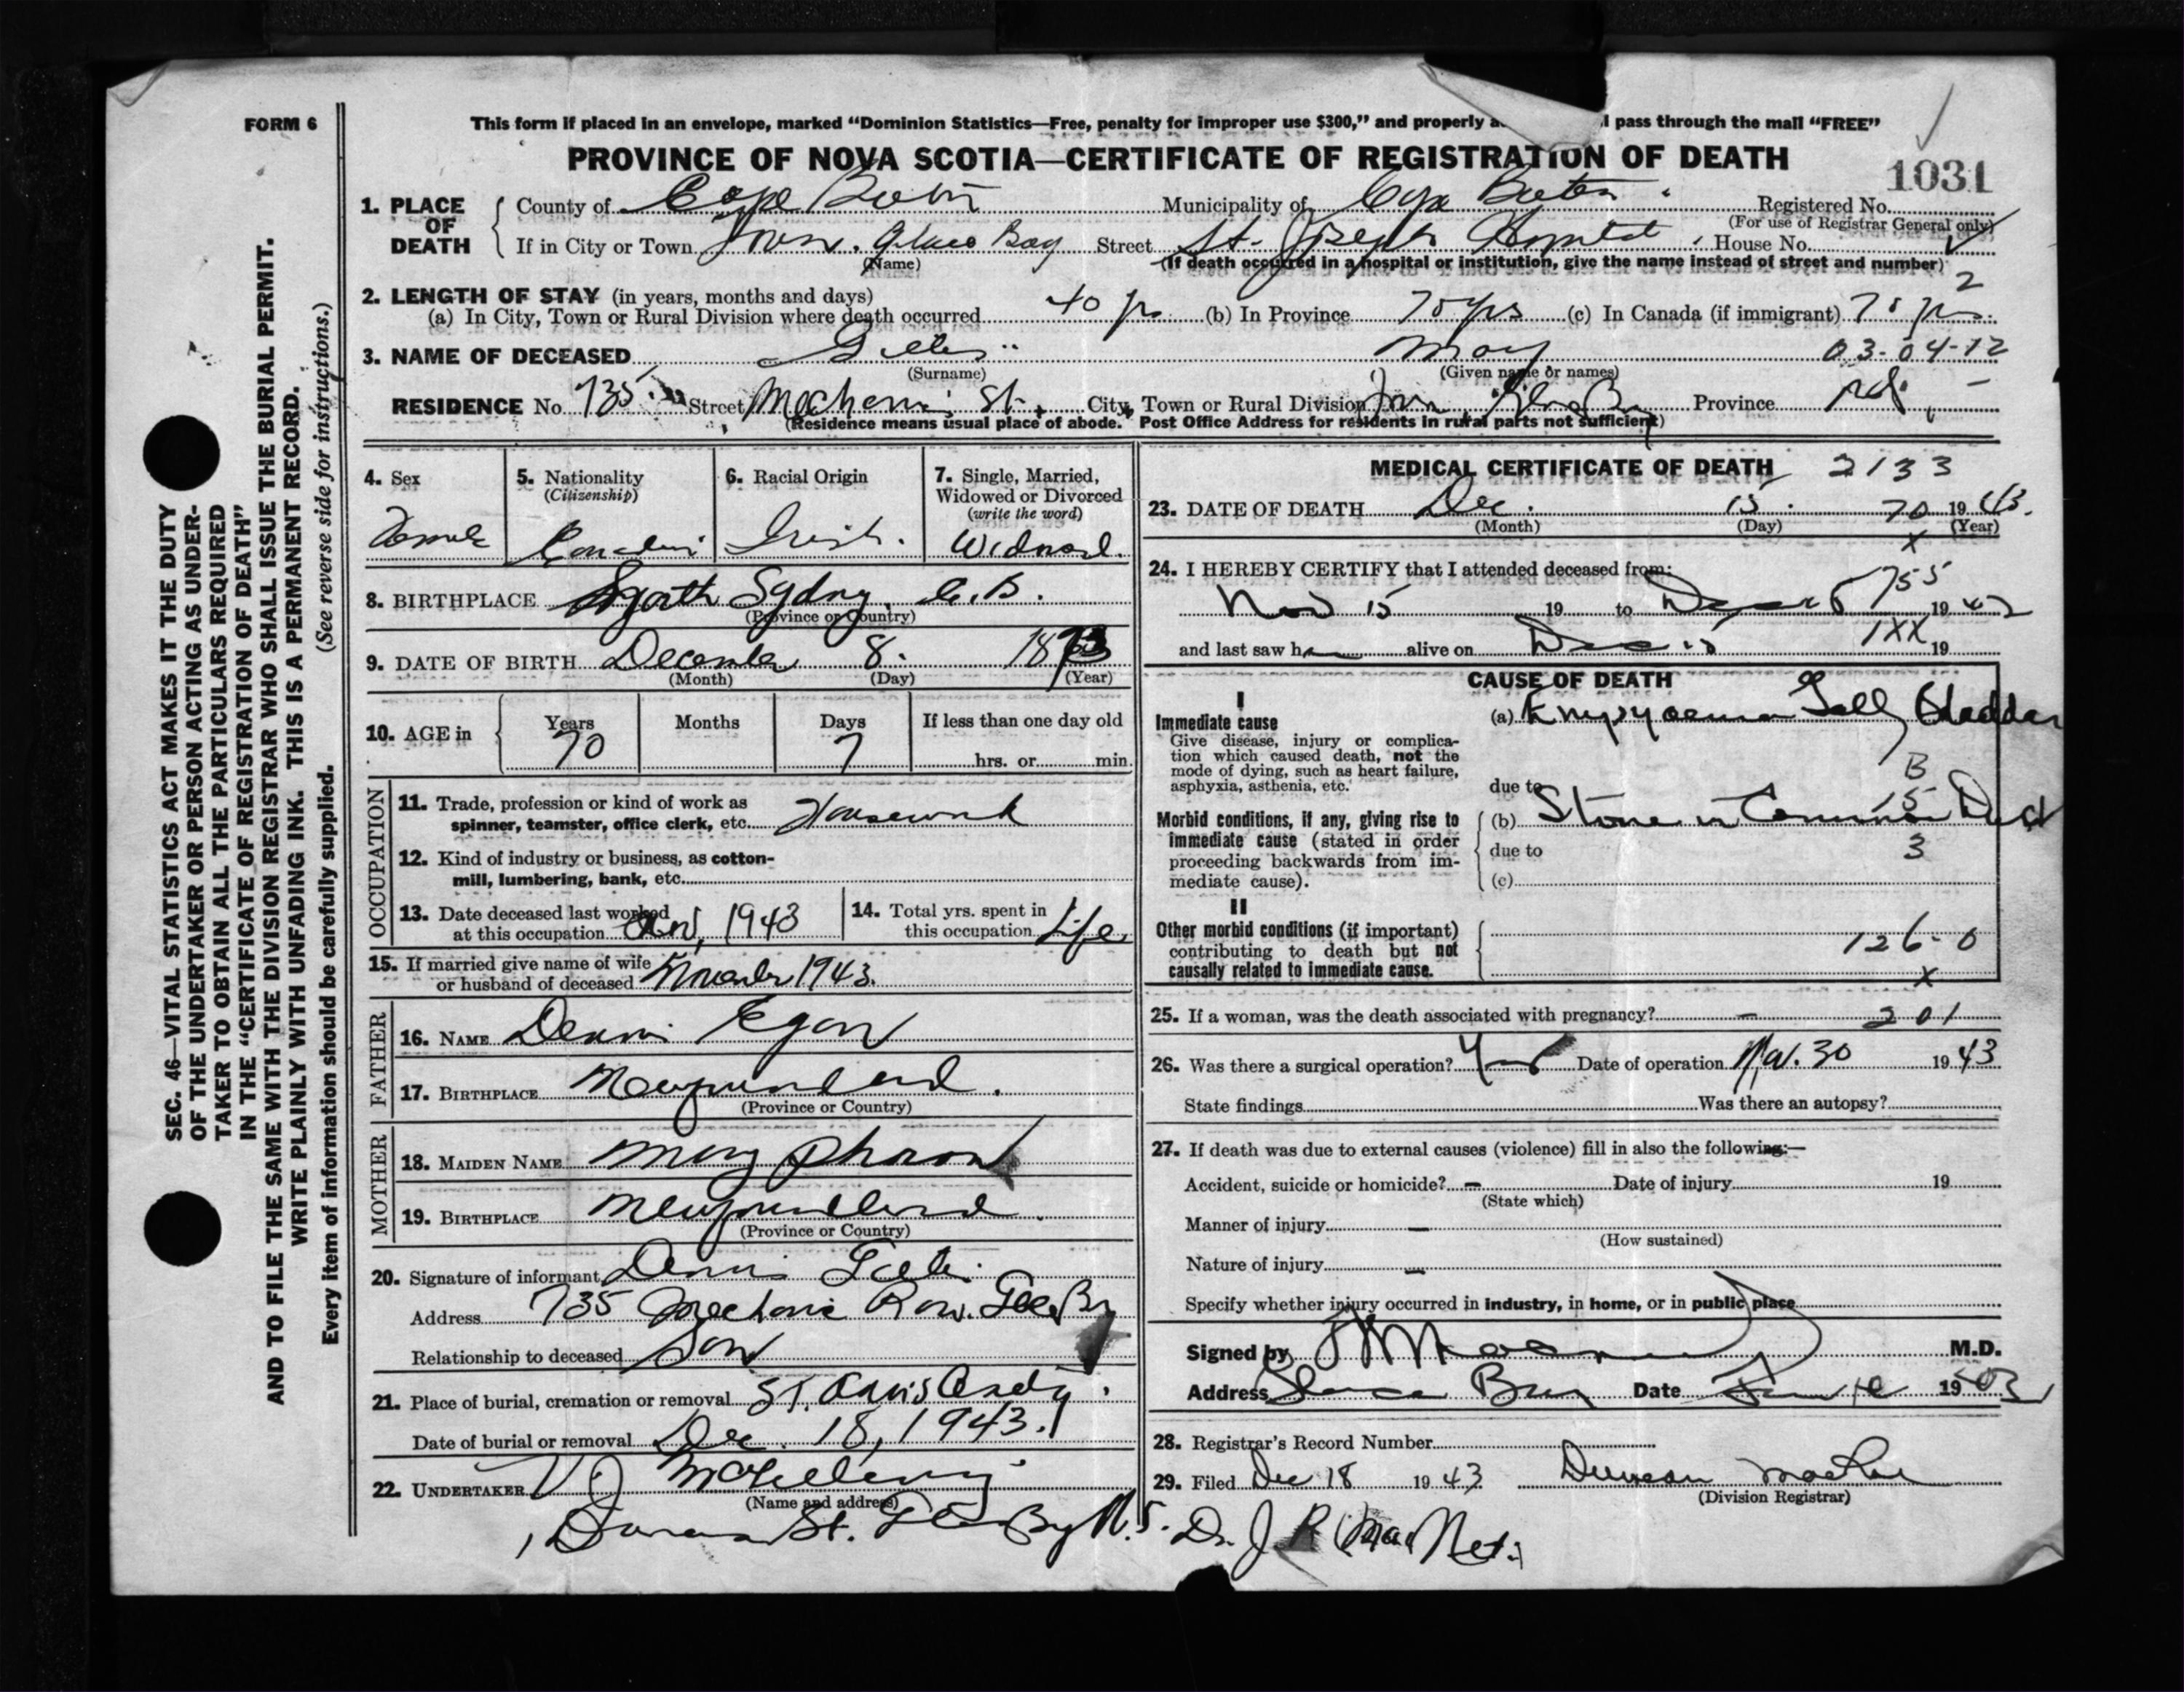 FORM 6
This form if placed in an envelope, marked "Dominion Statistics—Free, penalty for improper use $300," and properly a l pass through the mail "FREE"
PROVINCE OF NOVA SCOTIA—CERTIFICATE OF REGISTRATION OF DEATH
1031
1. PLACE OF DEATH County of Cape Breton Municipality of Cape Breton Registered No.
(For use of Registrar General only)
If in City or Town Town. Glace Bay Street St. Joseph Hospital House No.
(Name) (If death occurred in a hospital or institution, give the name instead of street and number)
2
2. LENGTH OF STAY (in years, months and days)
(a) In City, Town or Rural Division where death occurred 40 yrs (b) In Province 70 yrs (c) In Canada (if immigrant) 70 yrs.
3. NAME OF DECEASED May 03-04-12
(Surname) (Given name or names)
RESIDENCE No. 735. Street St. City, Town or Rural Division Town, Glace Bay Province
(Residence means usual place of abode. Post Office Address for residents in rural parts not sufficient)
4. Sex Female
5. Nationality (Citizenship) Canadian
6. Racial Origin Irish.
7. Single, Married, Widowed or Divorced (write the word) Widowed.
8. BIRTHPLACE North Sydney, C.B.
(Province or Country)
9. DATE OF BIRTH December 8. 1873
(Month) (Day) (Year)
10. AGE in Years 70 Months Days 7 If less than one day old hrs. or min.
OCCUPATION
11. Trade, profession or kind of work as spinner, teamster, office clerk, etc. Housework
12. Kind of industry or business, as cotton-mill, lumbering, bank, etc.
13. Date deceased last worked at this occupation Nov, 1943
14. Total yrs. spent in this occupation Life
15. If married give name of wife or husband of deceased November 1943.
FATHER
16. NAME Dennis Egan
17. BIRTHPLACE Newfoundland.
(Province or Country)
MOTHER
18. MAIDEN NAME Mary
19. BIRTHPLACE Newfoundland.
(Province or Country)
20. Signature of informant Dennis
Address 735 Mechanic Row. Glace Bay
Relationship to deceased Son
21. Place of burial, cremation or removal St. Anns
Date of burial or removal Dec. 18, 1943.
22. UNDERTAKER
(Name and address)
St. Glace Bay N.S.
MEDICAL CERTIFICATE OF DEATH 2133
23. DATE OF DEATH Dec. 15. 70 1943.
(Month) (Day) (Year)
x
24. I HEREBY CERTIFY that I attended deceased from:
755
Nov 15 19 to 19
and last saw h alive on Dec 15 1XX 19
CAUSE OF DEATH
I
Immediate cause
Give disease, injury or complication which caused death, not the mode of dying, such as heart failure, asphyxia, asthenia, etc.
(a) Empyema Gall Bladder
B
due to
15
Morbid conditions, if any, giving rise to immediate cause (stated in order proceeding backwards from immediate cause).
(b) Stone in Common Duct
due to 3
(c)
II
Other morbid conditions (if important) contributing to death but not causally related to immediate cause.
126-0
x
25. If a woman, was the death associated with pregnancy? — 201
26. Was there a surgical operation? Yes Date of operation Nov. 30 1943
State findings Was there an autopsy?
27. If death was due to external causes (violence) fill in also the following:—
Accident, suicide or homicide? — Date of injury 19
(State which)
Manner of injury —
(How sustained)
Nature of injury —
Specify whether injury occurred in industry, in home, or in public place
Signed by M.D.
Address Glace Bay Date 19
28. Registrar's Record Number
29. Filed Dec 18 1943 Duncan
(Division Registrar)
Dr. J R MacNeil
SEC. 46—VITAL STATISTICS ACT MAKES IT THE DUTY
OF THE UNDERTAKER OR PERSON ACTING AS UNDER-
TAKER TO OBTAIN ALL THE PARTICULARS REQUIRED
IN THE "CERTIFICATE OF REGISTRATION OF DEATH"
AND TO FILE THE SAME WITH THE DIVISION REGISTRAR WHO SHALL ISSUE THE BURIAL PERMIT.
WRITE PLAINLY WITH UNFADING INK. THIS IS A PERMANENT RECORD.
Every item of information should be carefully supplied. (See reverse side for instructions.)